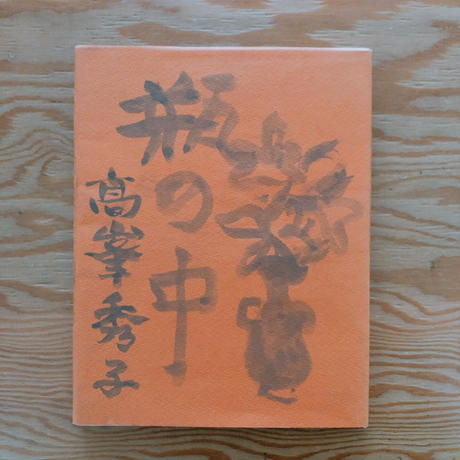 瓶の中
高峯秀子